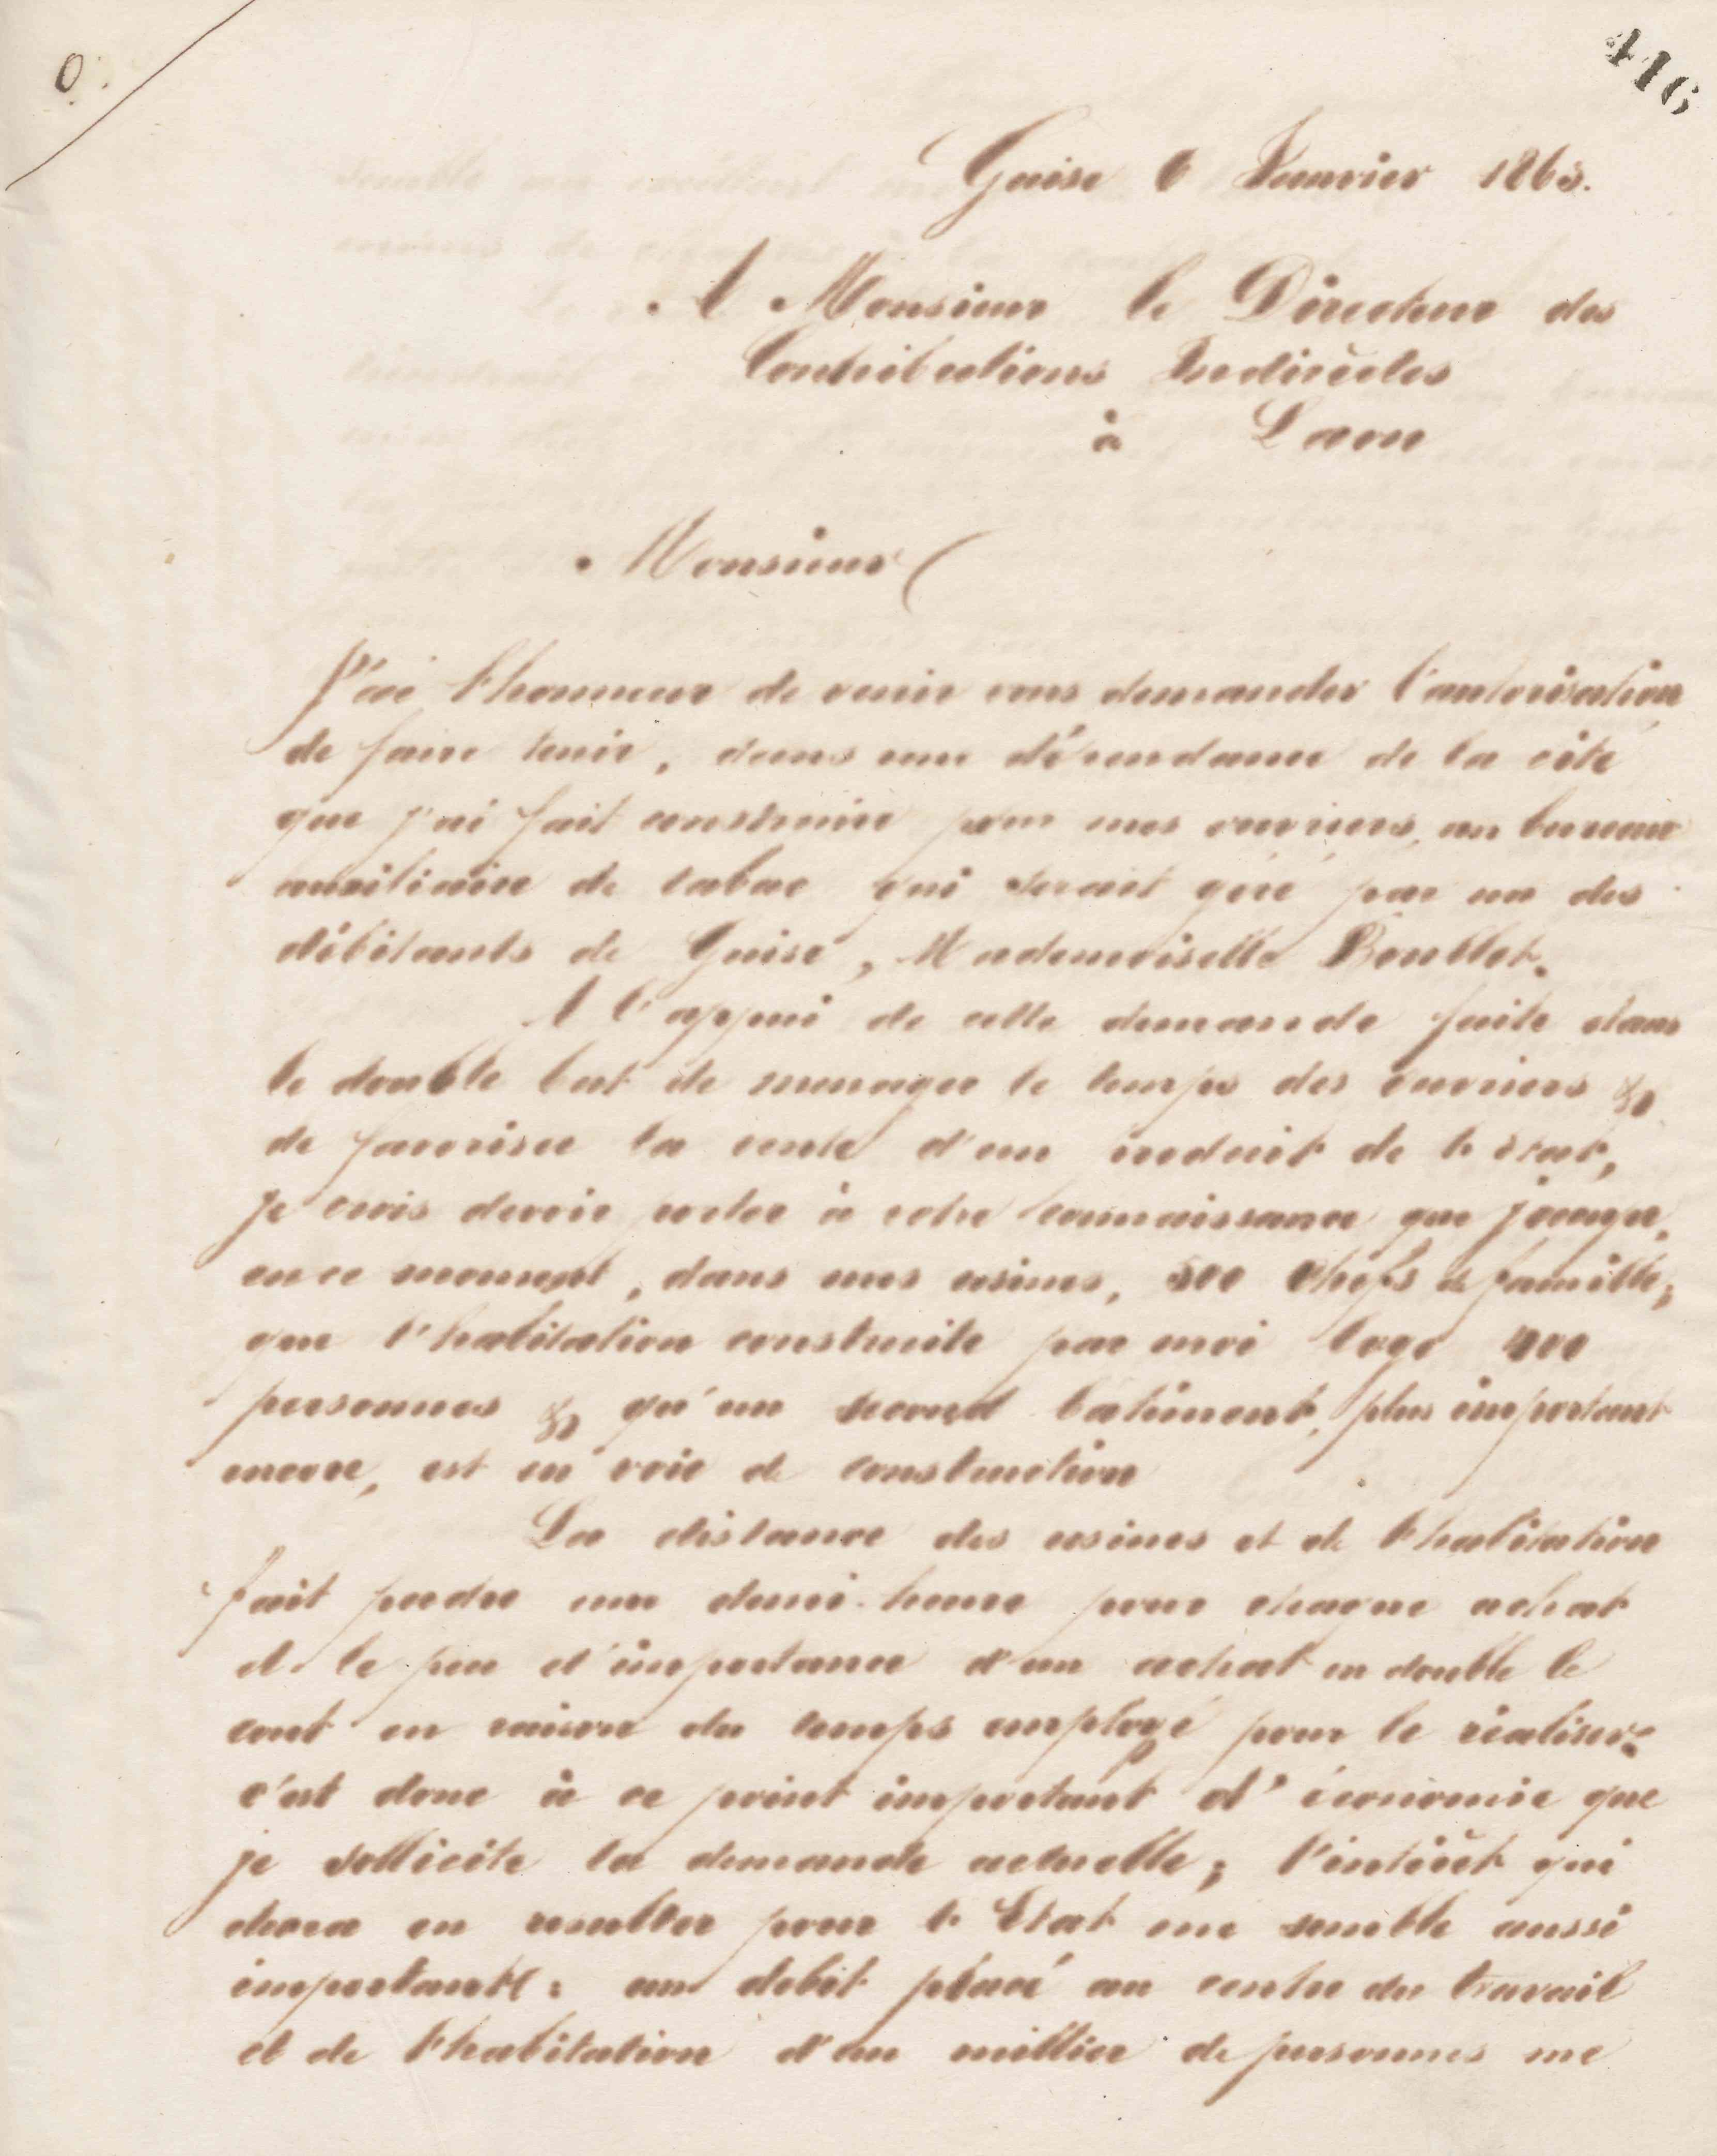 O.
416
Guise 6 Janvier 1863.
A Monsieur le Directeur des
Contributions Indirectes
à Laon
Monsieur
J'ai l'honneur de venir vous demander l'autorisation
de faire tenir, dans une dépendance de la cité
que j'ai fait construire pour mes ouvriers, un bureau
auxiliaire de tabac qui serait géré par un des
débitants de Guise, Mademoiselle Boublet.
A l'appui de cette demande faite dans
le double but de menager le temps des ouvriers &
de favoriser la vente d'un produit de l'Etat,
je crois devoir porter à votre connaissance que j'occupe,
en ce moment, dans mes usines, 500 chefs de famille;
que l'habitation construite par moi loge 400
personnes & qu'un second bâtiment, plus important
encore, est en voie de construction
La distance des usines et de l'habitation
fait perdre une demi-heure pour chaque achat
et le peu d'importance d'un achat en double le
cout en raison du temps employé pour le réaliser.
c'est donc à ce point important d'économie que
je sollicite la demande actuelle; l'intérêt qui
devra en resulter pour l'Etat me semble aussi
important: un debit placé au centre du travail
et de l'habitation d'un millier de personnes me